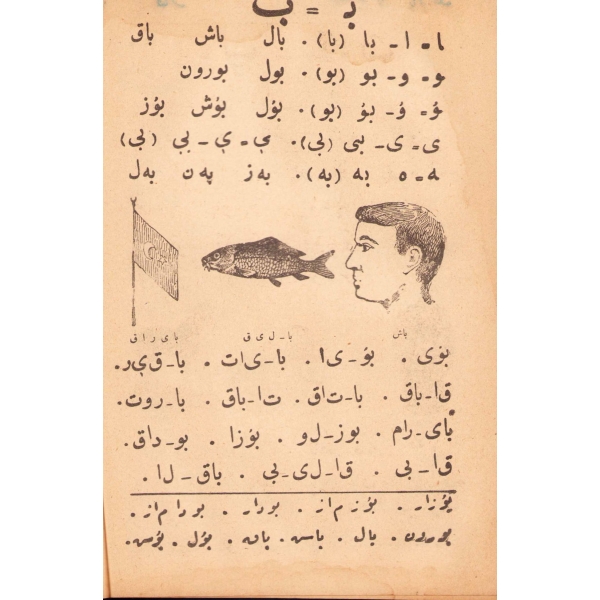 ب = ب
ا - ا - با (با). بال باش باق
و - و - بو (بو). بول بورون
ۇ - ۇ - بۇ (بو). بۇل بۇش بۇز
ى = ى - بى (بى). ي - ي - بي (بى)
ه - ه به (به). به‌ز په‌ن به‌ل
باش
با-لى‌ق
باى‌راق
بۇى. بۇ-ى‌ا. با-ى‌ات. با-قى‌ر.
قا-باق. با-تاق. تا-باق. با-روت.
باى-رام. بوز-لو. بۇزا. بو-داق.
قا-بى. قا-لى-بى. باق-لا.
بۇزار. بۇزم‌از. بودار. بورام‌از.
بورون. بال. باش. باق. بۇل. بۇش.